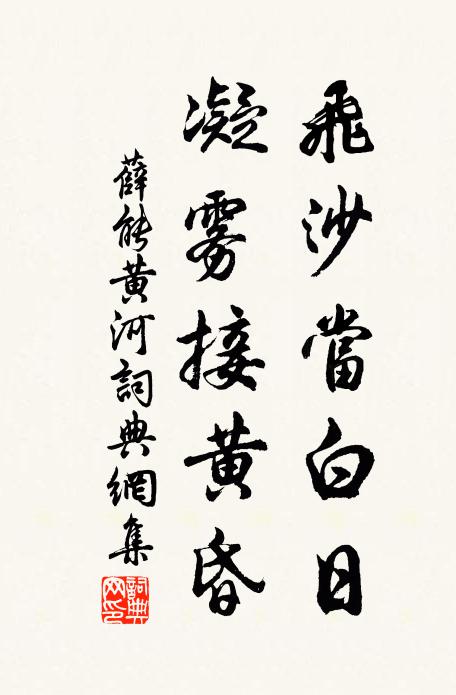 飛沙當白日
凝雾接黄昏
薛能黄河詞典網集
詞典网印